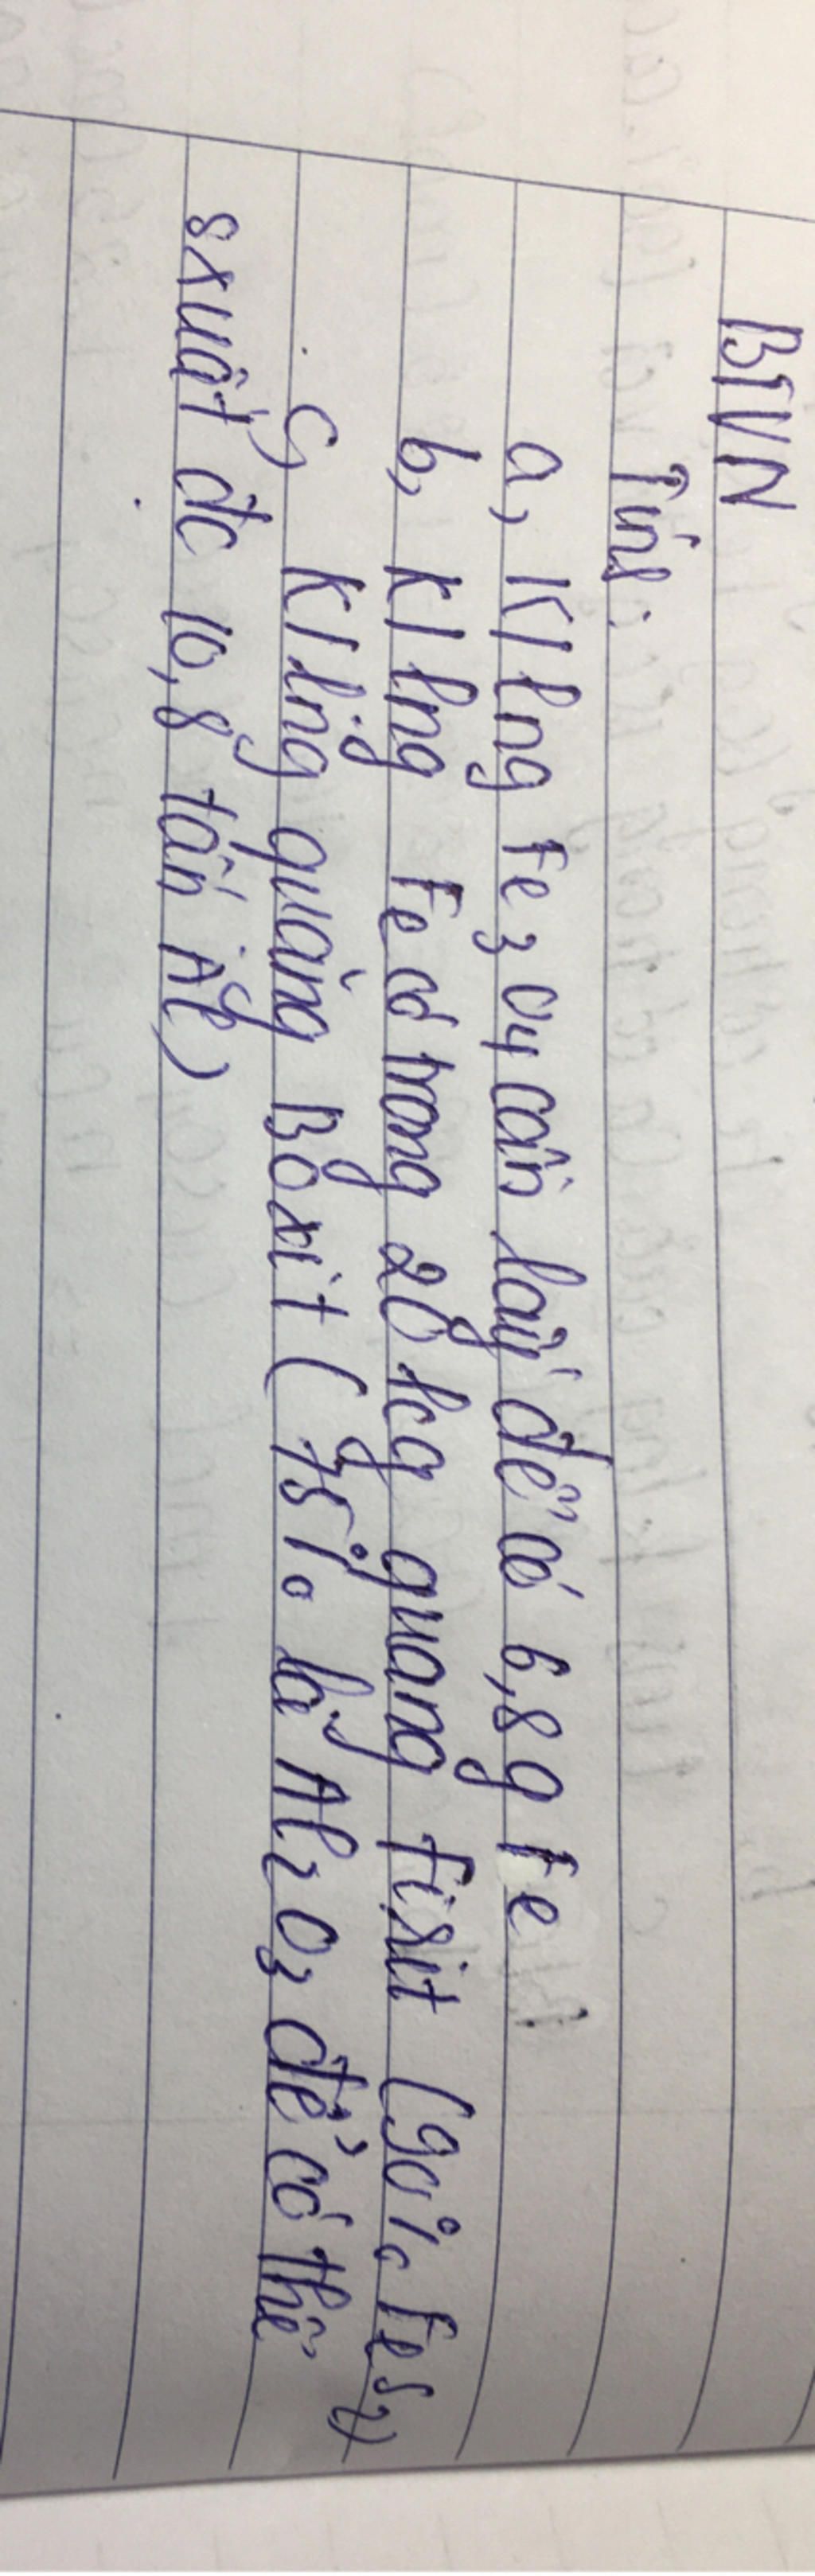 BTVN
Tính:
a, Kl lng Fe3O4 cần lấy để có 6,8g Fe
b, Kl lng Fe có trong 20 kg quặng Firit (90% FeS2)
c, Kl lng quặng Boxit (75% là Al2O3 để có thể
sxuất đc 10,8 tấn Al)